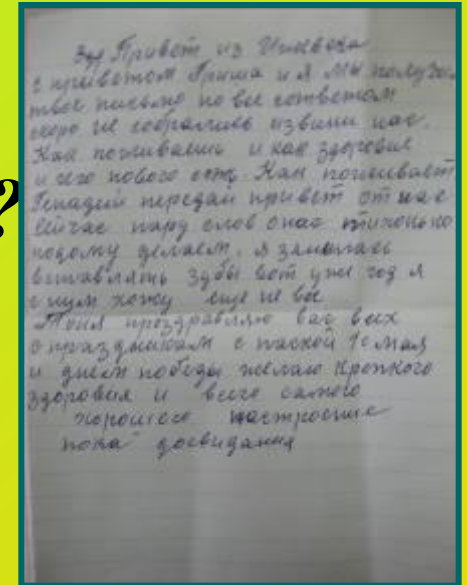 Привет из Ижевска
с приветом Гриша и я мы получили
твое письмо но все сответом
скоро не собрались извини нас.
Как поживаеш и как здоровие
и чего нового есть. Как поживает
Генадий передай привет от нас
Сейчас пару слов онас тихонько
подому делаем. я занялась
вставлять зубы вот уже год я
с ним хожу еще не все
Тоня проздравляю вас всех
с праздником с паской 1 мая
и днем победы желаю крепкого
здоровия и всего самого
хорошего настроение
пока досвидания
?